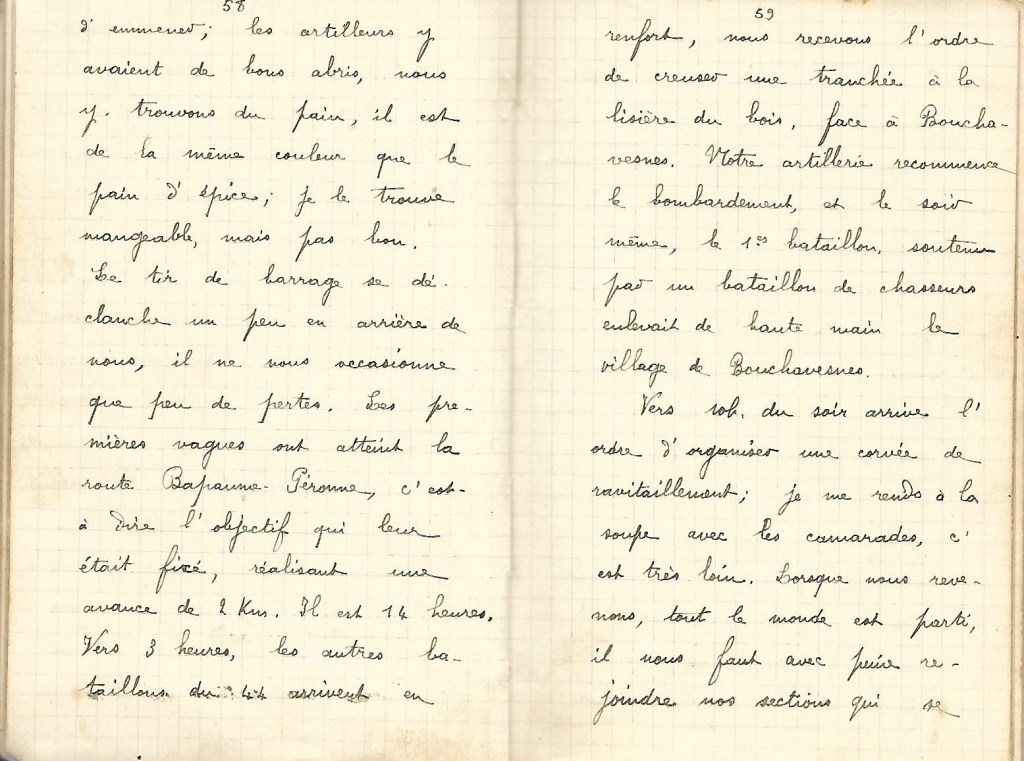 58
d'emmener; les artilleurs y
avaient de bons abris, nous
y. trouvons du pain, il est
de la même couleur que le
pain d'épice; je le trouve
mangeable, mais pas bon.
Le tir de barrage se dé-
clanche un peu en arrière de
nous, il ne nous occasionne
que peu de pertes. Les pre-
mières vagues ont atteint la
route Bapaume-Péronne, c'est-
à dire l'objectif qui leur
était fixé, réalisant une
avance de 2 Kms. Il est 14 heures.
Vers 3 heures, les autres ba-
taillons du 44 arrivent en
59
renfort, nous recevons l'ordre
de creuser une tranchée à la
lisière du bois, face à Boucha-
vesnes. Notre artillerie recommence
le bombardement, et le soir
même, le 1er bataillon, soutenu
par un bataillon de chasseurs
enlevait de haute main le
village de Bouchavesnes.
Vers 10h. du soir arrive l'
ordre d'organiser une corvée de
ravitaillement; je me rends à la
soupe avec les camarades, c'
est très loin. Lorsque nous reve-
nons, tout le monde est parti,
il nous faut avec peine re-
joindre nos sections qui se